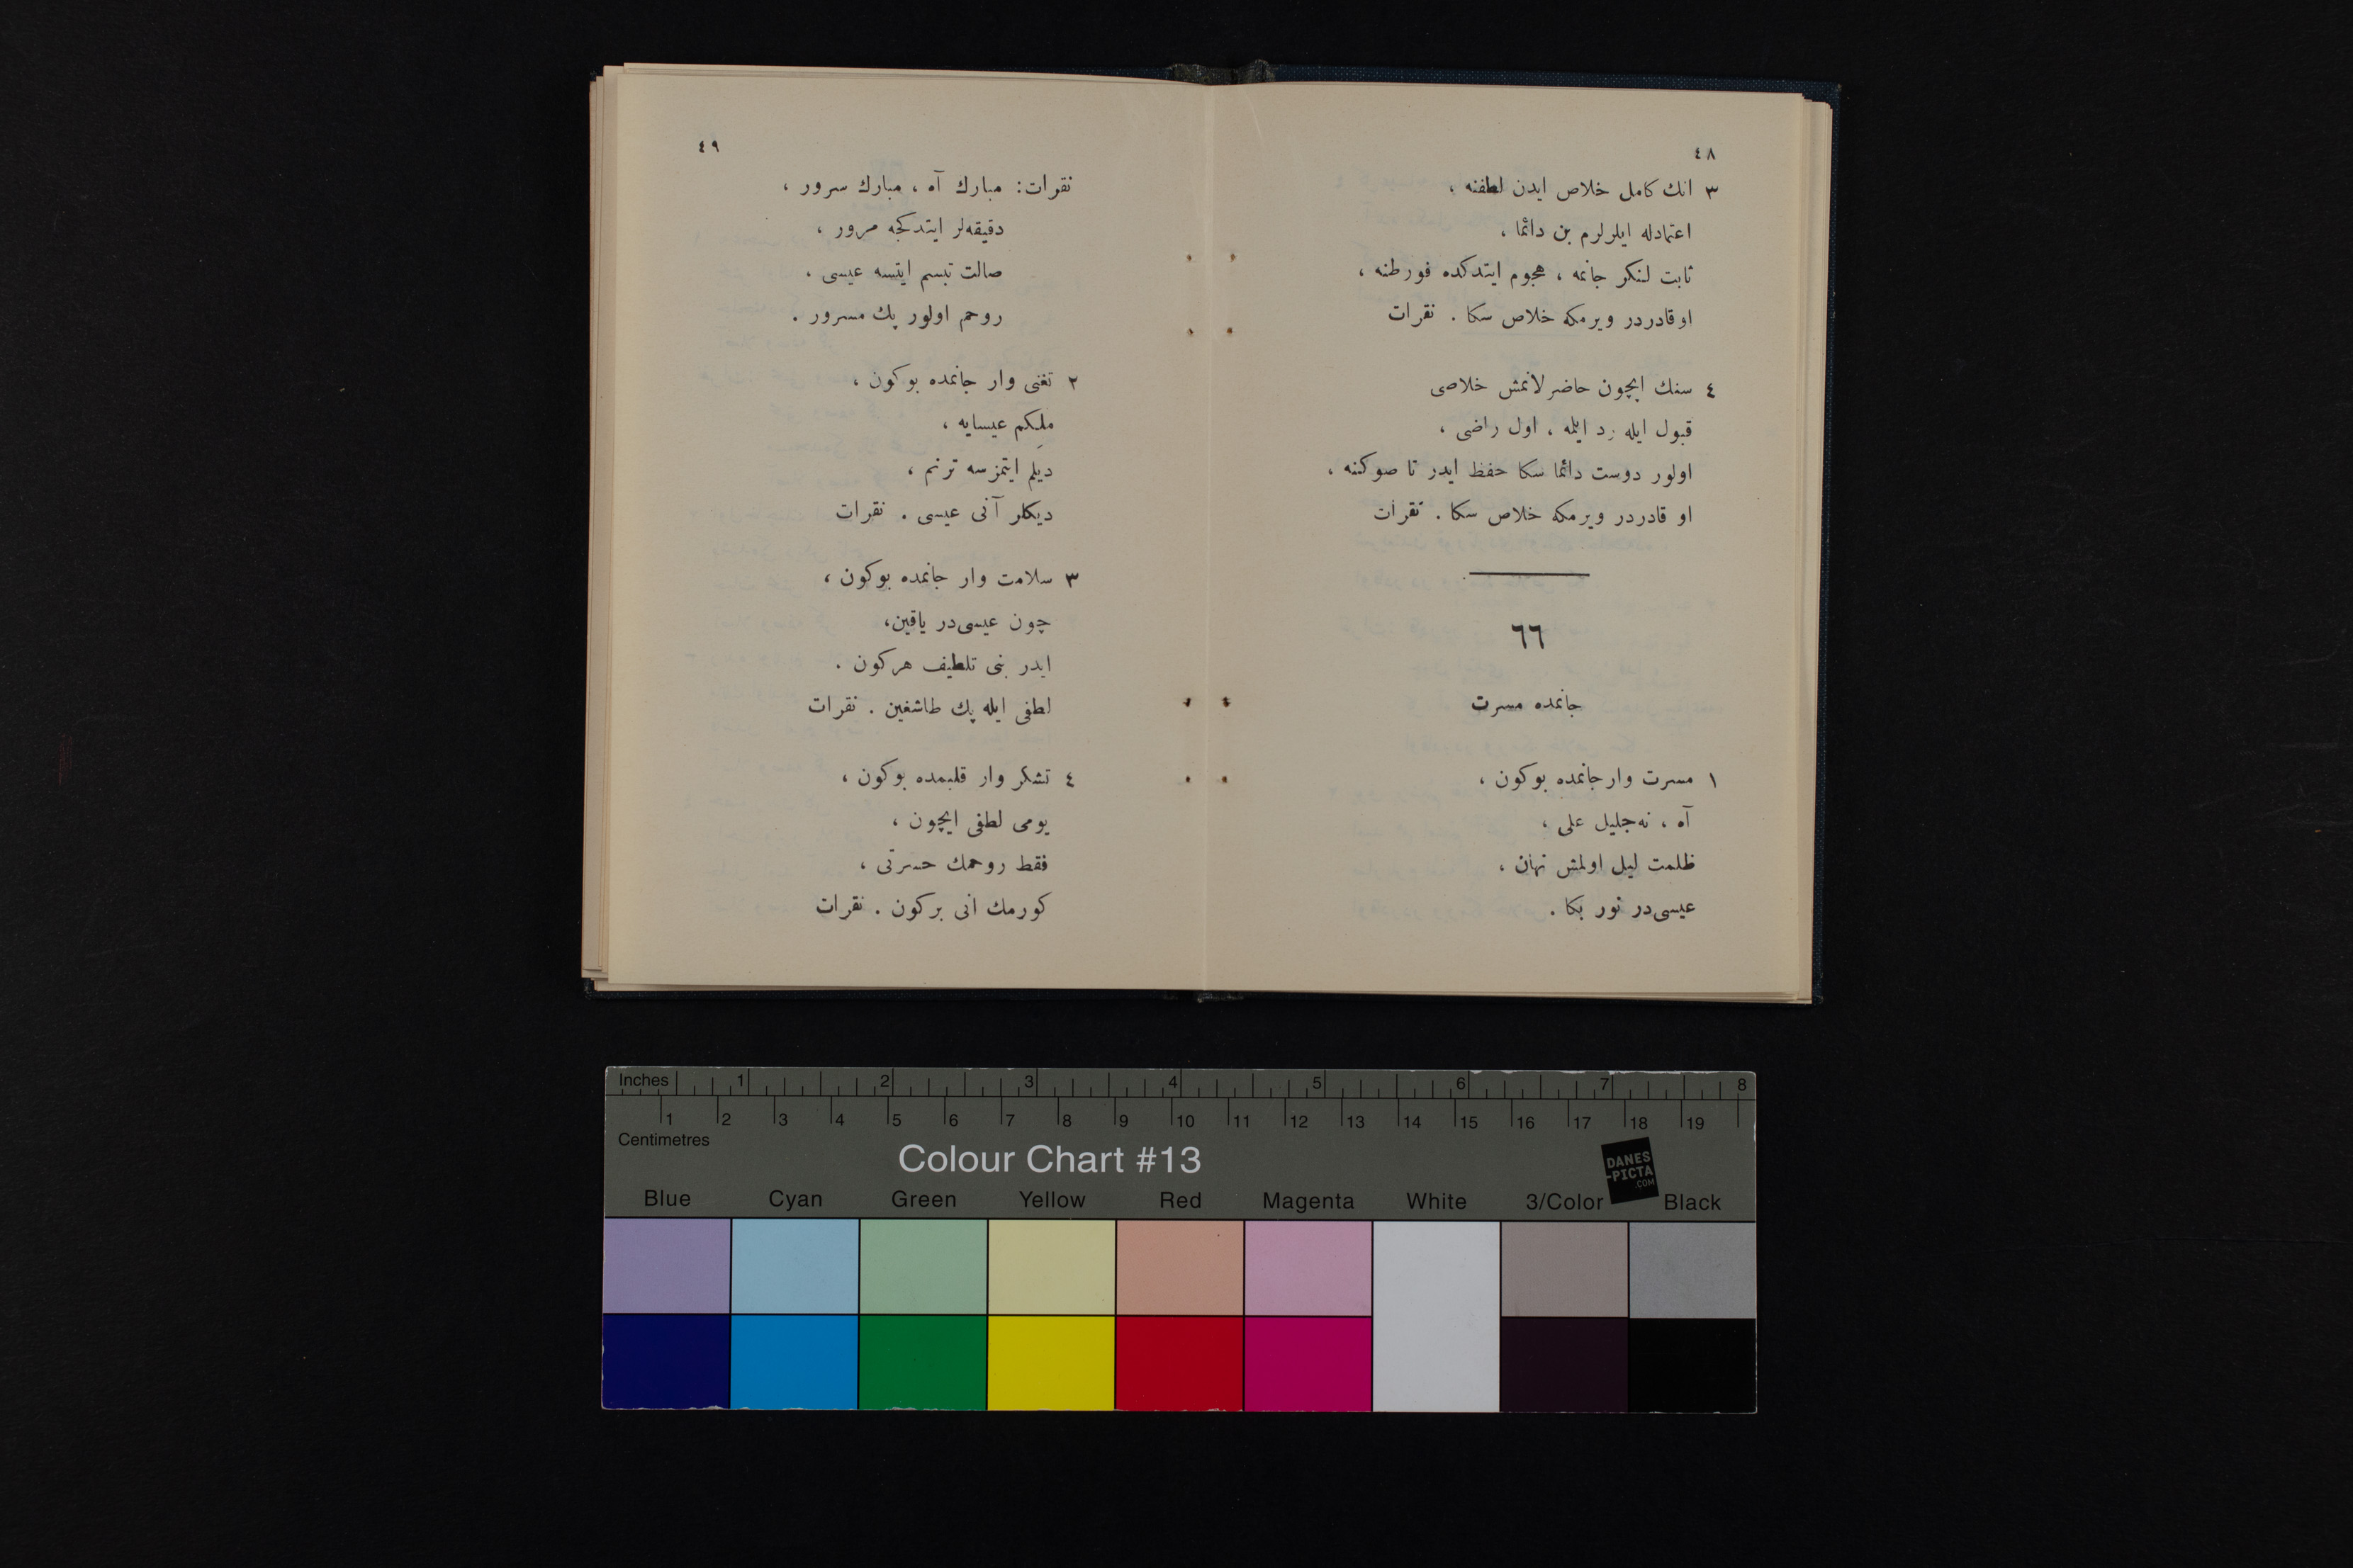 ٤٨
٣ انك كامل خلاص ايدن لطفنه ،
اعتمادله ايلرلرم بن دائما ،
ثابت لنكر جانمه ، هجوم ايتدكده فورطنه ،
اوقادردر ويرمكه خلاص سكا . نقرات
٤ سنك ايچون حاضرلانمش خلاصى
قبول ايله رد ايلمه ، اول راضى ،
اولور دوست دائما سكا حفظ ايدر تا صوكنه ،
او قادردر ويرمكه خلاص سكا . نقرات
٦٦
جانمده مسرت
١ مسرت وار جانمده بوكون ،
آه ، نه جليل على ،
ظلمت ليل اولمش نهان ،
عيسى در نور بكا .
٤٩
نقرات: مبارك آه ، مبارك سرور ،
دقيقه لر ايتدكجه مرور ،
صالت تبسم ايتسه عيسى ،
روحم اولور پك مسرور .
٢ تغنى وار جانمده بوكون ،
ملِكم عيسايه ،
ديلم ايتمزسه ترنم ،
ديكلر آنى عيسى . نقرات
٣ سلامت وار جانمده بوكون ،
چون عيسى در ياقين،
ايدر بنى تلطيف هركون .
لطفى ايله پك طاشغين . نقرات
٤ تشكر وار قلبمده بوكون ،
يومى لطفى ايچون ،
فقط روحمك حسرتى ،
كورمك انى بركون . نقرات
Inches 1 2 3 4 5 6 7 8
1 2 3 4 5 6 7 8 9 10 11 12 13 14 15 16 17 18 19
Centimetres
Colour Chart #13
DANES
-PICTA
.COM
Blue Cyan Green Yellow Red Magenta White 3/Color Black